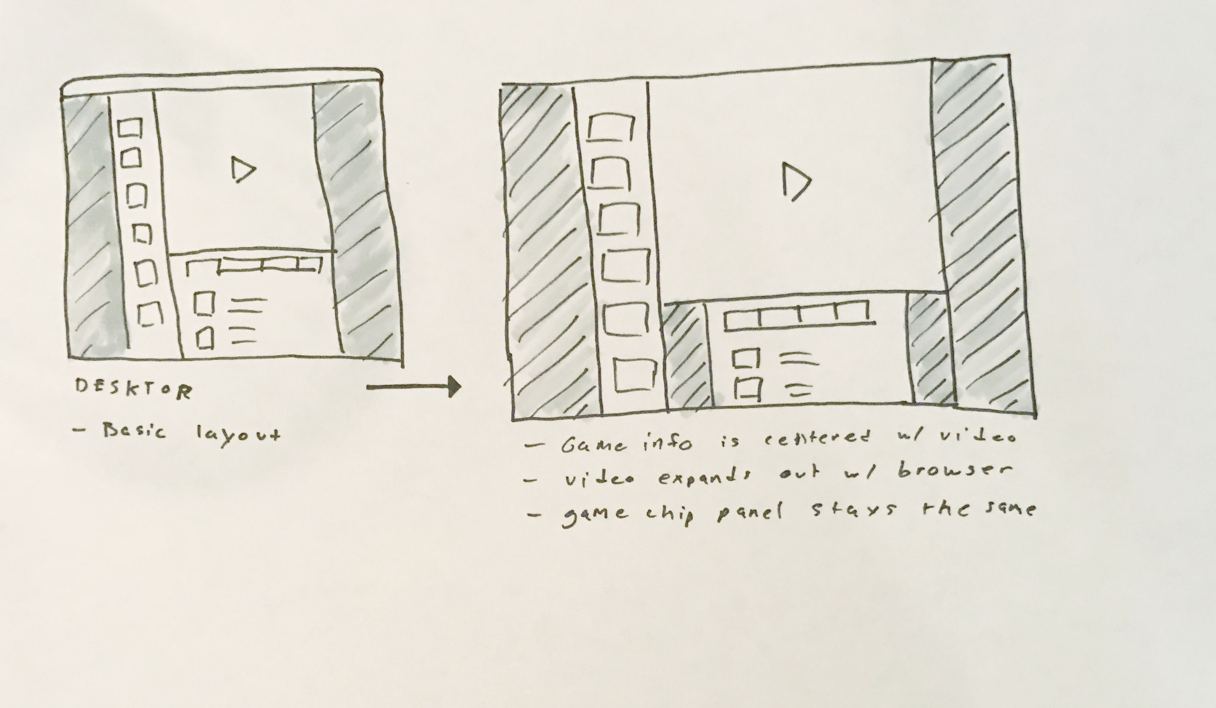 DESKTOP
- Basic layout
- Game info is centered w/ video
- video expands out w/ browser
- game chip panel stays the same